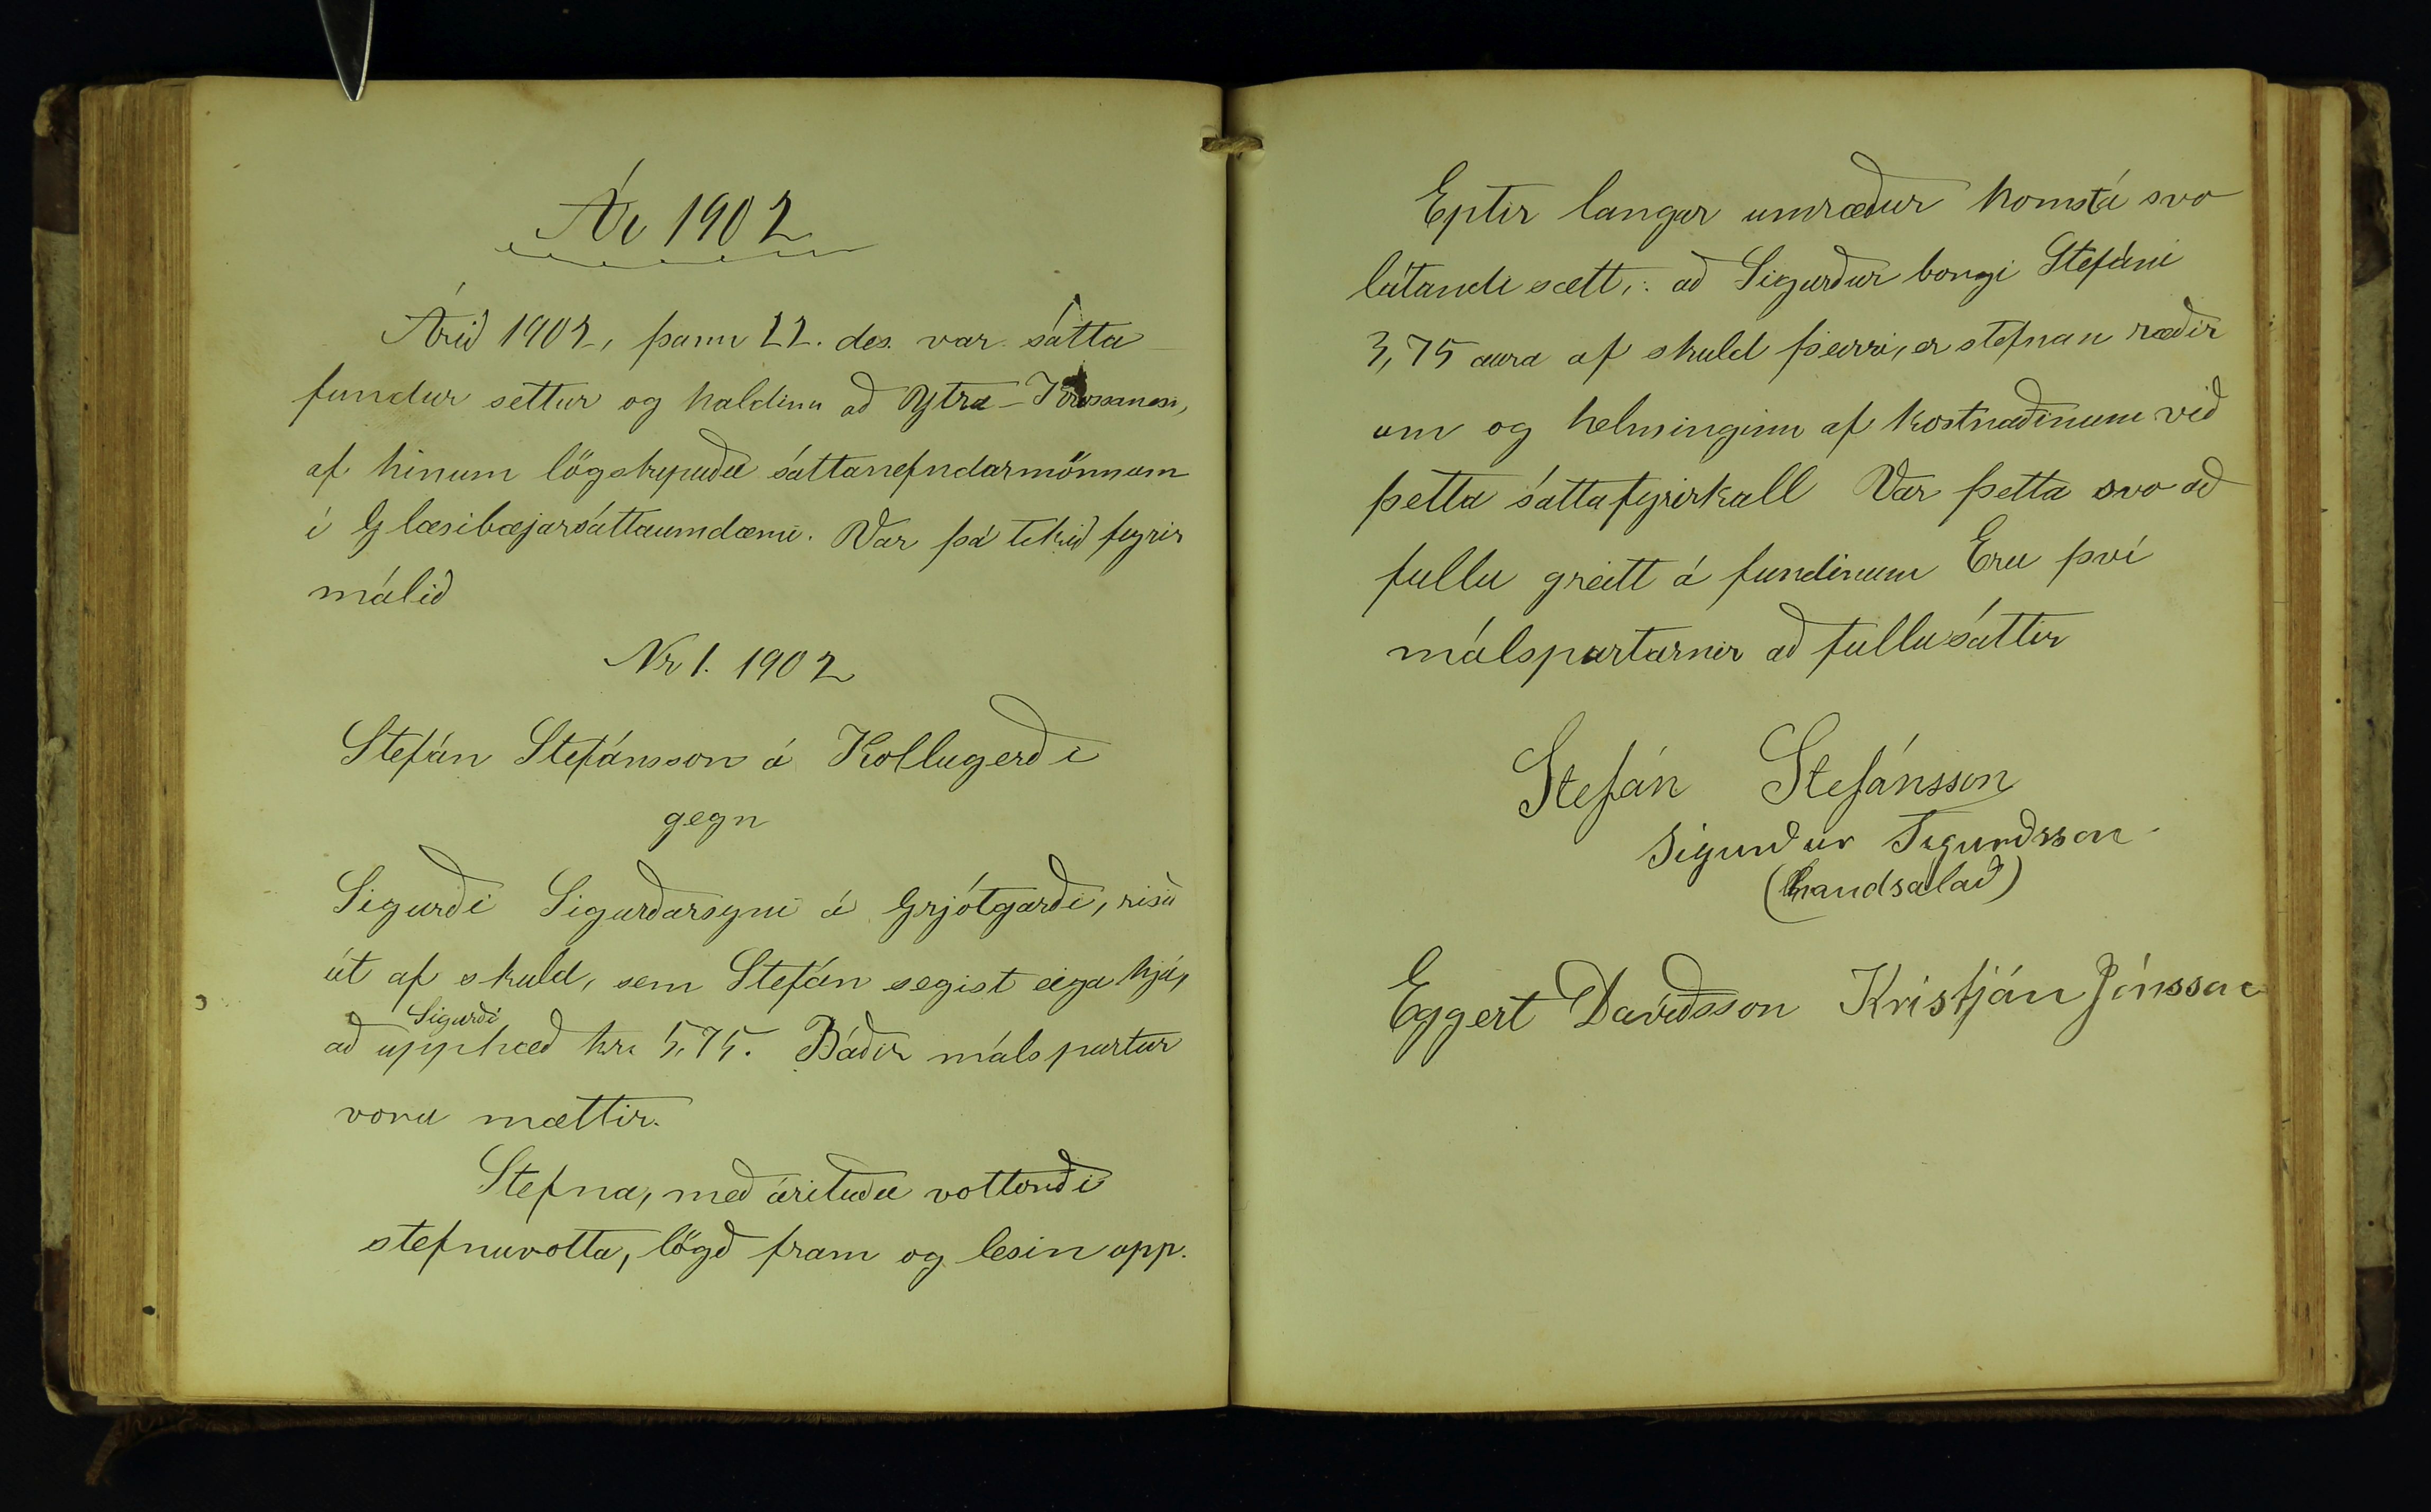 Ár 1902
Árið 1902, þann 22. des. var sátta
fundur settur og haldinn að Ytra-Krossanesi,
af hinum lögskipuðu sáttanefndarmönnum
í Glæsibæjarsáttaumdæmi. Var þá tekið fyrir
málið
Nr 1. 1902
Stefán Stefánsson á Kollugerði
gegn
Sigurði Sigurðarsyni á Grjótgarði, risið
út af skuld, sem Stefán segist eiga hjá,
Sigurði
að upphæð kr. 5,75. Báðir málspartar
voru mættir.
Stefna, með árituðu vottorði
stefnuvotta, lögð fram og lesin upp.
Eptir langar umræður komst á svo
látandi sætt,: að Sigurður borgi Stefáni
3,75 aura af skuld þeirri, er stefnan ræðir
um og helminginn af kostnaðinum við
þetta sáttafyrirkall Var þetta svo að
fullu greitt á fundinum Eru því
málspartarnir að fullu sáttir
Stefán Stefánsson
Sigurður Sigurðsson
(handsalað)
Eggert Davíðsson Kristján Jónsson